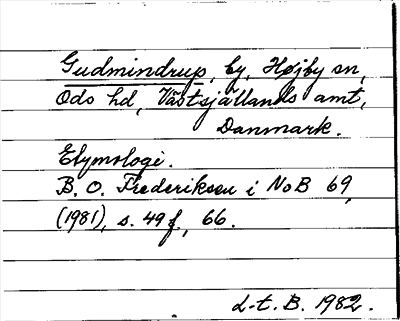 Gudmindrup, by, Højby sn,
Ods hd, Västsjällands amt,
Danmark.
Etymologi.
B. O. Frederiksen i NoB 69,
(1981), s. 49 f., 66.
L-t. B. 1982.